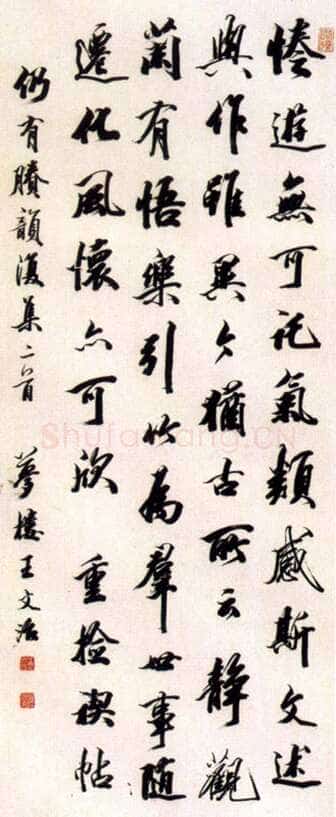 惓遊無可託氣類感斯文述
與作雖異今猶古所云靜觀
蘭有悟樂引竹為羣世事隨
遷化風懷亦可欣 重撿禊帖
仍有賸韻復集二首 夢樓王文治
Shufawang.CN